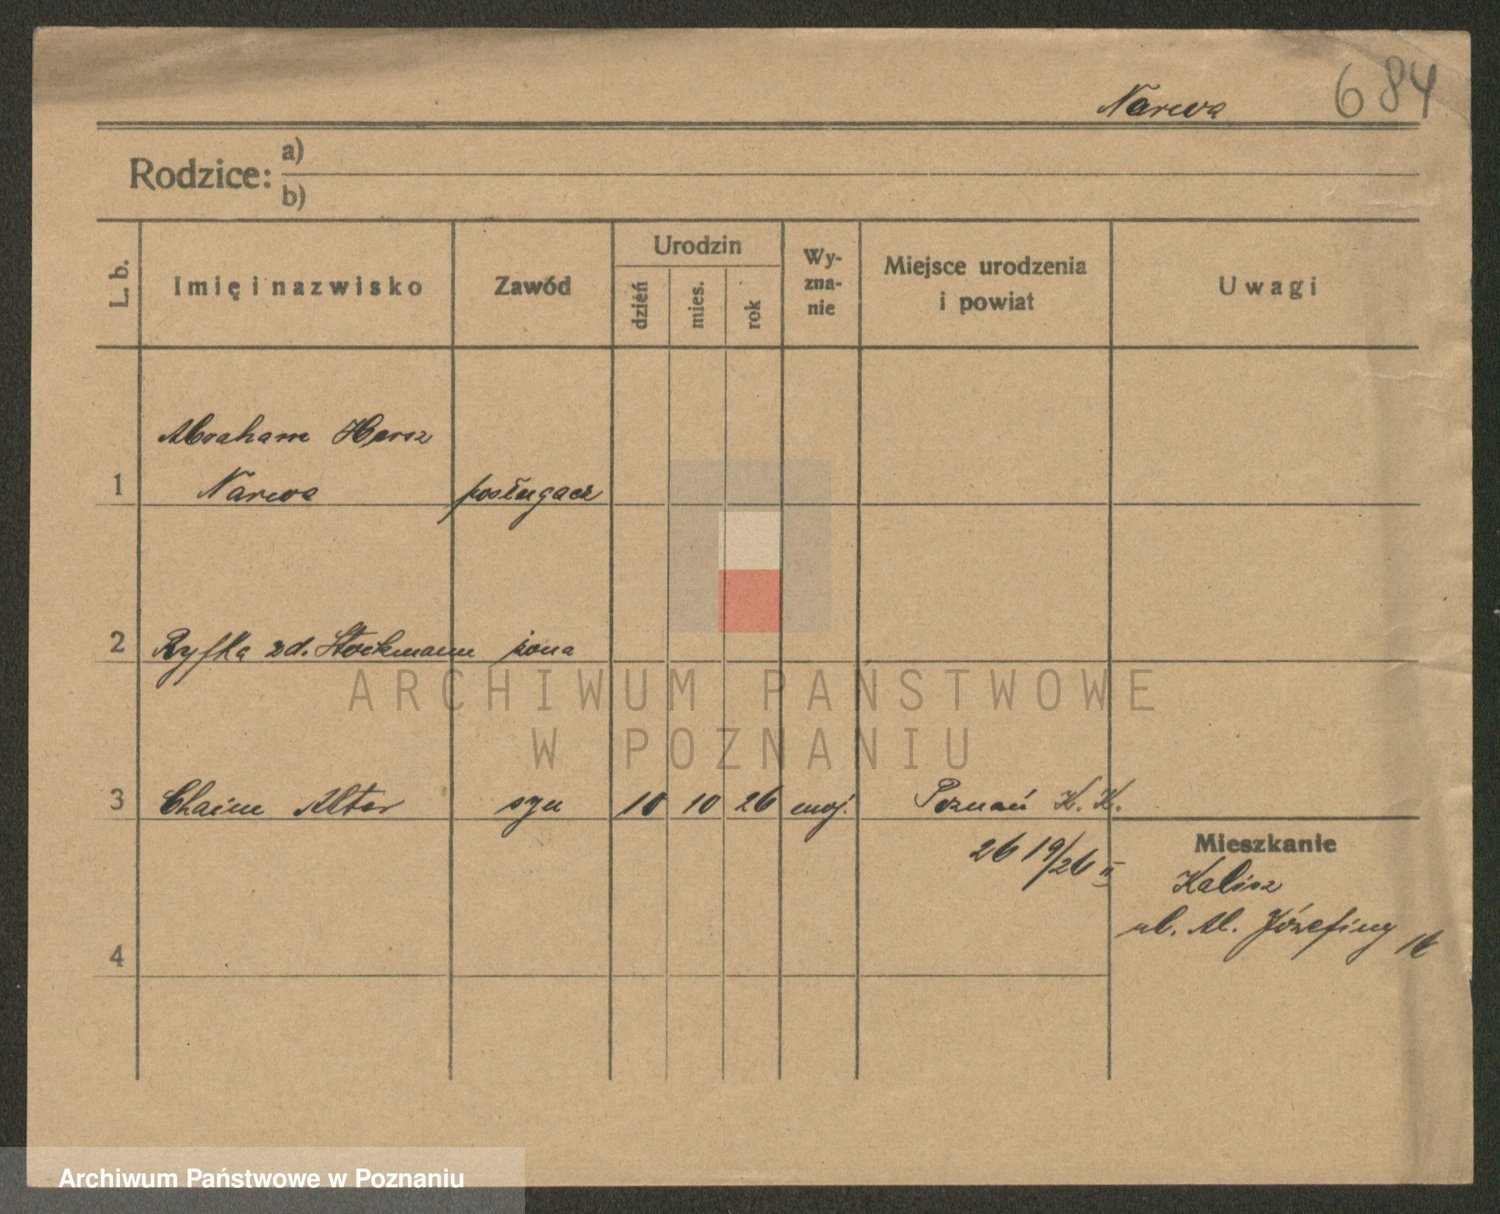 Narwa 684
Rodzice: a)
b)
L. b. Imię i nazwisko Zawód Urodzin dzień mies. rok Wy-zna-nie Miejsce urodzenia i powiat Uwagi
Abraham Hersz
1 Narwa posługacz
2 Ryfka zd. Stockmann żona
ARCHIWUM PAŃSTWOWE
W POZNANIU
3 Chaim Alter syn 10 10 26 moj. Poznań K. K.
26 19/26 II
Mieszkanie
Kalisz
ul. Al. Józefiny
4
Archiwum Państwowe w Poznaniu